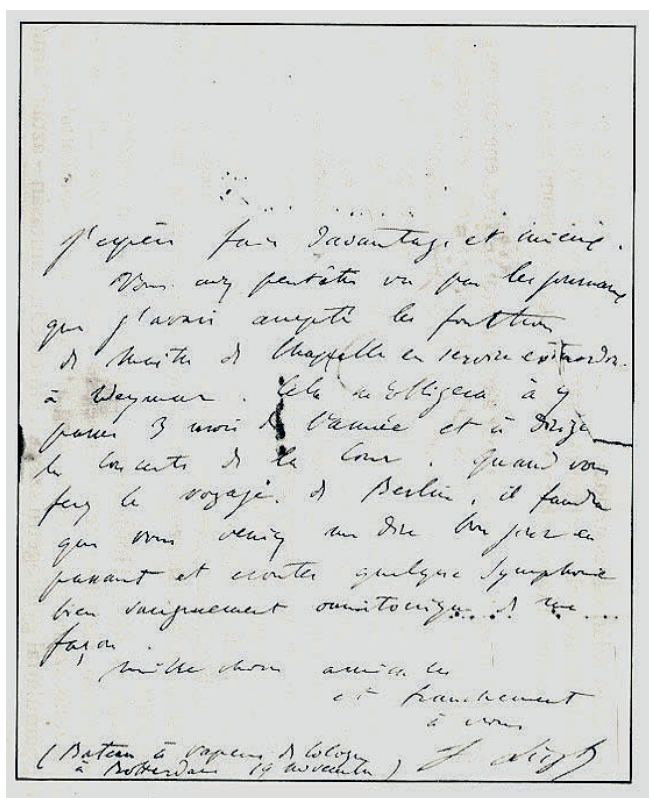 j'espère faire davantage et mieux.
Vous avez peutêtre vu par les journaux
que j'avais accepté les fonctions
de Maitre de Chappelle en service extraordre.
à Weymar. Cela m'obligera à y
passer 3 mois de l'année et à diriger
les concerts de la Cour. Quand vous
ferez le voyage de Berlin, il faudra
que vous veniez me dire bon jour en
passant et écouter quelque Symphonie
bien omnitonique de ma
façon.
mille choses amicales
et franchement
à vous
F Liszt
(Bateau à vapeur de Cologne
à Rotterdam 19 novembre)